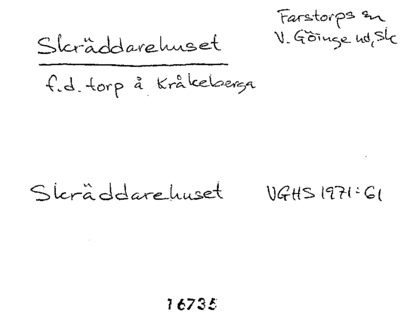 Skräddarehuset
Farstorps sn
V. Göinge hd, Sk
f.d. torp å Kråkeberga
Skräddarehuset VGHS 1971:61
16735